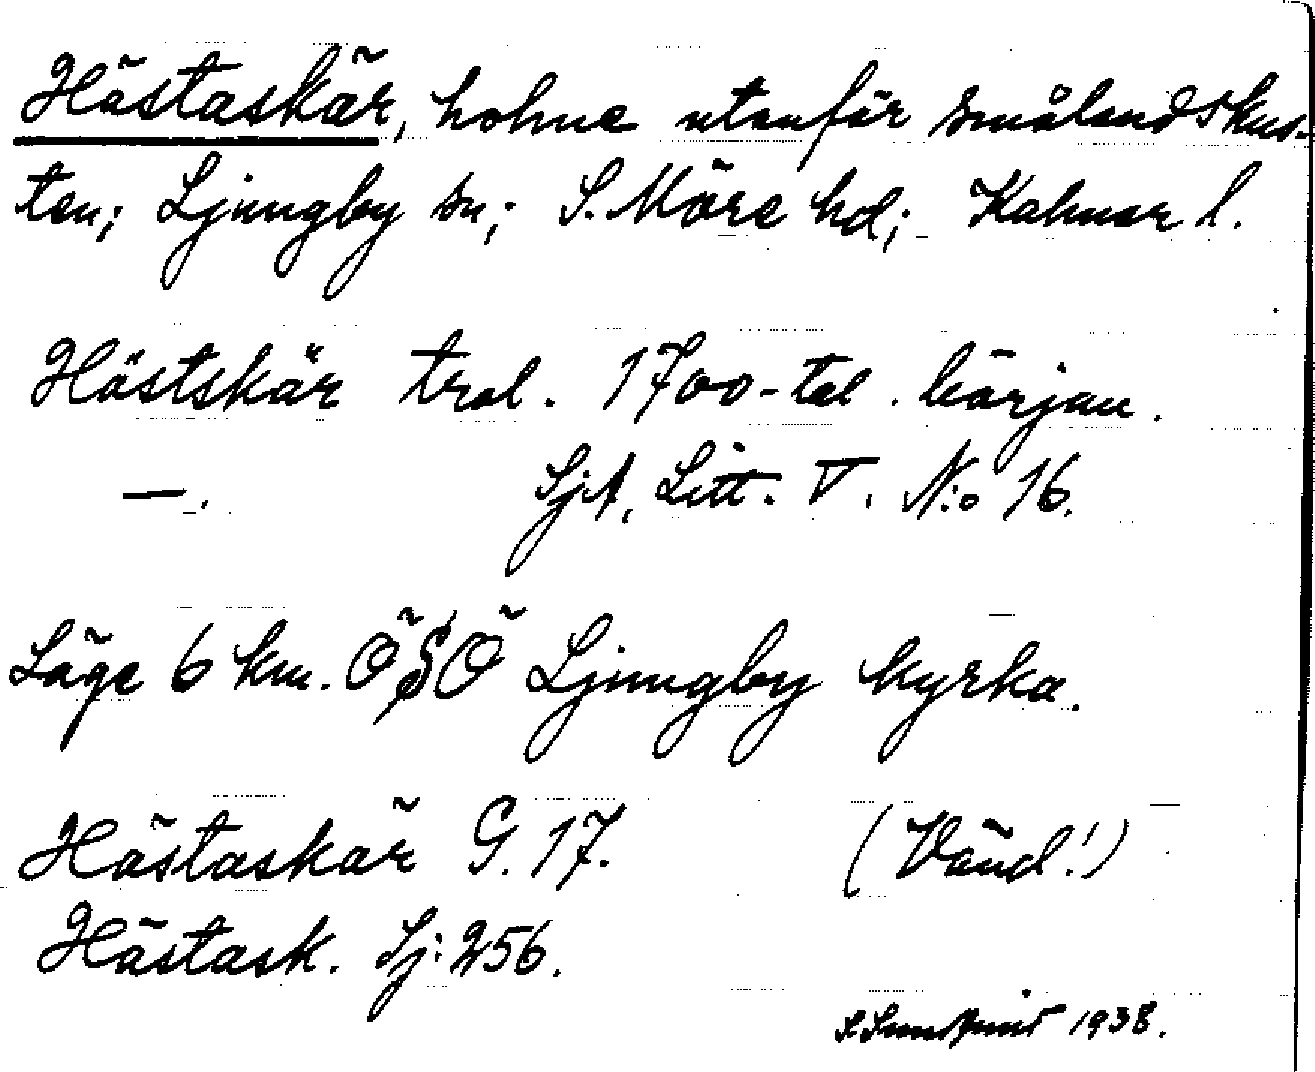 Hästaskär, holme utanför smålandskus-
ten; Ljungby sn; S. Möre hd; Kalmar l.
Hästskär trol. 1700-tal. början.
—. SjA, Litt. V. N:o 16.
Läge 6 km. ÖSÖ Ljungby kyrka.
Hästaskär G. 17. (Vänd!)
Hästask. Sj: 256.
1938.